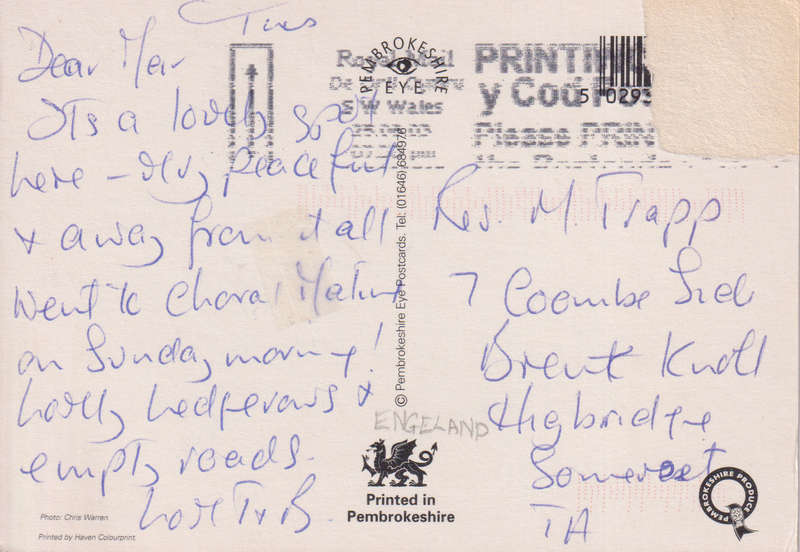 Tues
Dear Mer
Its a lovely spot
here - very peaceful
& away from it all
Went to Choral Matins
on Sunday morning!
lovely hedgerows &
empty roads.
Love T & B.
Royal Mail
S W Wales
PRINTING
y Cod
Please PRIN
PEMBROKESHIRE
EYE
5 0293
© Pembrokeshire Eye Postcards. Tel: (01646) 684976
Rev. M. Trapp
7 Coombe
Brent Knoll
Highbridge
Somerset
TA
ENGELAND
Printed in
Pembrokeshire
PEMBROKESHIRE PRODUCE
Photo: Chris Warren
Printed by Haven Colourprint.